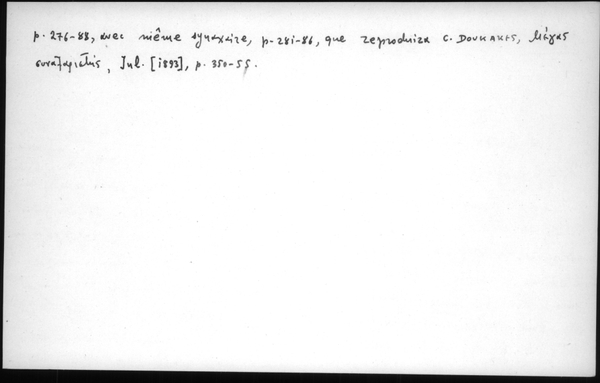 p. 276-88, avec même synaxaire, p. 281-86, que reproduira C. DOUKAKES, Μέγας
συναξαριστής, Jul. [1893], p. 350-55.